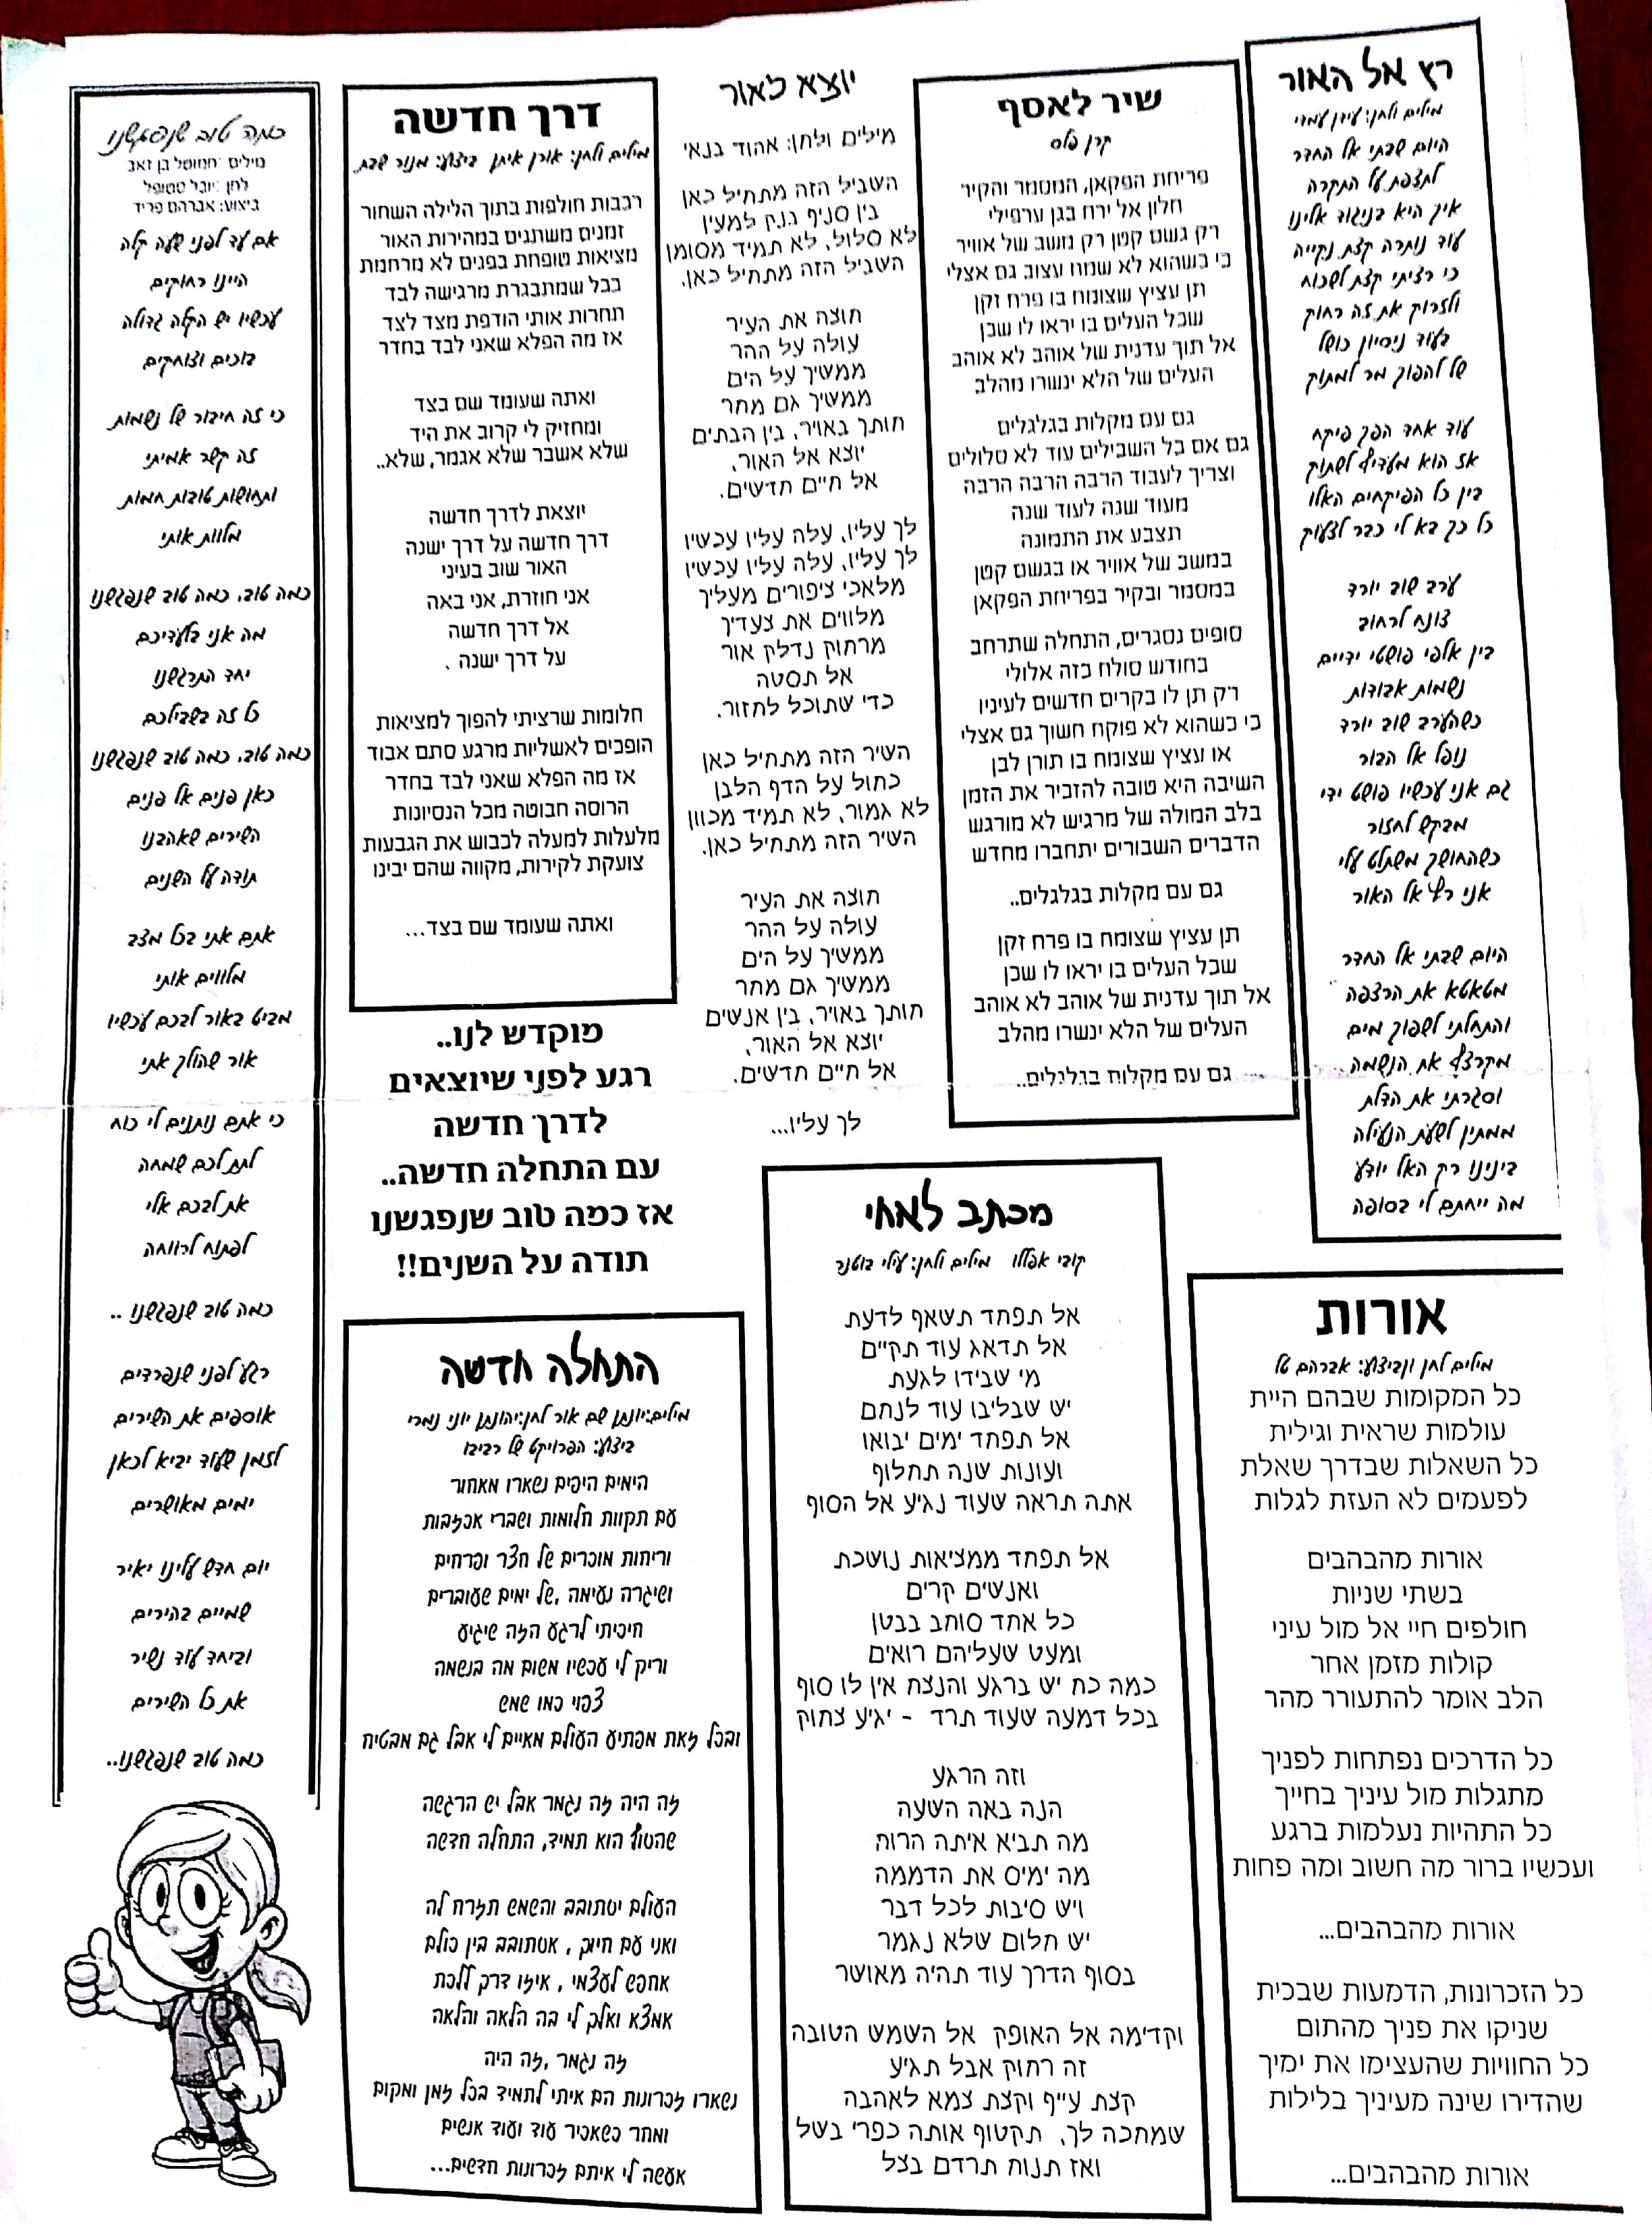 רץ אל האור
מילים ולחן: עידן עמדי
היום שבתי אל החדר
לצפת על התקרה
איך היא בניגוד אלינו
עוד נותרה קצת נקייה
כי רציתי קצת לשכוח
ולזרוק את זה רחוק
בעוד ניסיון כושל
של להפוך מר למתוק
עוד אחד הפך פיקח
אז הוא מעדיף לשתוק
בין כל הפיקחים האלו
כל כך בא לי כבר לצעוק
ערב שוב יורד
צונח לרחוב
בין אלפי פושטי ידיים
נשמות אבודות
כשהערב שוב יורד
נופל אל הבור
גם אני עכשיו פושט ידי
מבקש לחזור
כשהחושך משתלט עלי
אני רץ אל האור
היום שבתי אל החדר
מטאטא את הרצפה
והתחלתי לשפוך מים
מקרצף את הנשמה
וסגרתי את הדלת
ממתין לשעת הנעילה
בינינו רק האל יודע
מה ייחתם לי בסופה
שיר לאסף
קרן פלס
פריחת הפקאן, המסמר והקיר
חלון אל ירח בגן ערפילי
רק גשם קטן רק משב של אוויר
כי כשהוא לא שמח עצוב גם אצלי
תן עציץ שצומח בו פרח זקן
שכל העלים בו יראו לו שכן
אל תוך עדנית של אוהב לא אוהב
העלים של הלא ינשרו מהלב
גם עם מקלות בגלגלים
גם אם כל השבילים עוד לא סלולים
וצריך לעבוד הרבה הרבה הרבה
מעוד שנה לעוד שנה
תצבע את התמונה
במשב של אוויר או בגשם קטן
במסמר ובקיר בפריחת הפקאן
סופים נסגרים, התחלה שתרחב
בחודש סולח כזה אלולי
רק תן לו בקרים חדשים לעיניו
כי כשהוא לא פוקח חשוך גם אצלי
או עציץ שצומח בו תורן לבן
השיבה היא טובה להזכיר את הזמן
בלב המולה של מרגיש לא מורגש
הדברים השבורים יתחברו מחדש
גם עם מקלות בגלגלים..
תן עציץ שצומח בו פרח זקן
שכל העלים בו יראו לו שכן
אל תוך עדנית של אוהב לא אוהב
העלים של הלא ינשרו מהלב
גם עם מקלות בגלגלים..
יוצא לאור
מילים ולחן: אהוד בנאי
השביל הזה מתחיל כאן
בין סניף בנק למעין
לא סלול, לא תמיד מסומן
השביל הזה מתחיל כאן.
חוצה את העיר
עולה על ההר
ממשיך על הים
ממשיך גם מחר
חותך באויר, בין הבתים
יוצא אל האור,
אל חיים חדשים.
לך עליו, עלה עליו עכשיו
לך עליו, עלה עליו עכשיו
מלאכי ציפורים מעליך
מלווים את צעדיך
מרחוק נדלק אור
אל תסטה
כדי שתוכל לחזור.
השיר הזה מתחיל כאן
כחול על הדף הלבן
לא גמור, לא תמיד מכוון
השיר הזה מתחיל כאן.
חוצה את העיר
עולה על ההר
ממשיך על הים
ממשיך גם מחר
חותך באויר, בין אנשים
יוצא אל האור,
אל חיים חדשים.
לך עליו...
דרך חדשה
מילים ולחן: אורן איתן ביצוע: מנור שבת
רכבות חולפות בתוך הלילה השחור
זמנים משתנים במהירות האור
מציאות טופחת בפנים לא מרחמת
ככל שמתבגרת מרגישה לבד
תחרות אותי הודפת מצד לצד
אז מה הפלא שאני לבד בחדר
ואתה שעומד שם בצד
ומחזיק לי קרוב את היד
שלא אשבר שלא אגמר, שלא..
יוצאת לדרך חדשה
דרך חדשה על דרך ישנה
האור שוב בעיני
אני חוזרת, אני באה
אל דרך חדשה
על דרך ישנה .
חלומות שרציתי להפוך למציאות
הופכים לאשליות מרגע סתם אבוד
אז מה הפלא שאני לבד בחדר
הרוסה חבוטה מכל הנסיונות
מלעלות למעלה לכבוש את הגבעות
צועקת לקירות, מקווה שהם יבינו
ואתה שעומד שם בצד...
כמה טוב שנפגשנו
מילים :חמוטל בן זאב
לחן :יובל סטופל
ביצוע: אברהם פריד
אם עד לפני שעה קלה
היינו רחוקים
עכשיו יש הקלה גדולה
בוכים וצוחקים
כי זה חיבור של נשמות
זה קשר אמיתי
ותחושות טובות חמות
מלוות אותי
כמה טוב, כמה טוב שנפגשנו
מה אני בלעדיכם
יחד התרגשנו
כל זה בשבילכם
כמה טוב, כמה טוב שנפגשנו
כאן פנים אל פנים
השירים שאהבנו
תודה על השנים
אתם אתי בכל מצב
מלווים אותי
מביט באור לבכם עכשיו
אור שהולך אתי
כי אתם נותנים לי כוח
לתת לכם שמחה
את לבכם אלי
לפתוח לרווחה
כמה טוב שנפגשנו ..
רגע לפני שנפרדים
אוספים את השירים
לזמן שעוד יביא לכאן
ימים מאושרים
יום חדש עלינו יאיר
שמיים בהירים
וביחד עוד נשיר
את כל השירים
כמה טוב שנפגשנו..
מוקדש לנו..
רגע לפני שיוצאים
לדרך חדשה
עם התחלה חדשה..
אז כמה טוב שנפגשנו
תודה על השנים!!
אורות
מילים לחן וביצוע: אברהם טל
כל המקומות שבהם היית
עולמות שראית וגילית
כל השאלות שבדרך שאלת
לפעמים לא העזת לגלות
אורות מהבהבים
בשתי שניות
חולפים חיי אל מול עיני
קולות מזמן אחר
הלב אומר להתעורר מהר
כל הדרכים נפתחות לפניך
מתגלות מול עיניך בחייך
כל התהיות נעלמות ברגע
ועכשיו ברור מה חשוב ומה פחות
אורות מהבהבים...
כל הזכרונות, הדמעות שבכית
שניקו את פניך מהתום
כל החוויות שהעצימו את ימיך
שהדירו שינה מעיניך בלילות
אורות מהבהבים...
מכתב לאחי
קובי אפללו מילים ולחן: עילי בוטנר
אל תפחד תשאף לדעת
אל תדאג עוד תקיים
מי שבידו לגעת
יש שבליבו עוד לנחם
אל תפחד ימים יבואו
ועונות שנה תחלוף
אתה תראה שעוד נגיע אל הסוף
אל תפחד ממציאות נושכת
ואנשים קרים
כל אחד סוחב בבטן
ומעט שעליהם רואים
כמה כח יש ברגע והנצח אין לו סוף
בכל דמעה שעוד תרד - יגיע צחוק
וזה הרגע
הנה באה השעה
מה תביא איתה הרוח
מה ימיס את הדממה
ויש סיבות לכל דבר
יש חלום שלא נגמר
בסוף הדרך עוד תהיה מאושר
וקדימה אל האופק אל השמש הטובה
זה רחוק אבל תגיע
קצת עייף וקצת צמא לאהבה
שמחכה לך, תקטוף אותה כפרי בשל
ואז תנוח תרדם בצל
התחלה חדשה
מילים:יונתן שם אור לחן:יהונתן יוני נמרי
ביצוע: הפרויקט של רביבו
הימים היפים נשארו מאחור
עם תקוות חלומות ושברי אכזבות
וריחות מוכרים של חצר ופרחים
ושיגרה נעימה ,של ימים שעוברים
חיכיתי לרגע הזה שיגיע
וריק לי עכשיו משום מה בנשמה
צפוי כמו שמש
ובכל זאת מפתיע העולם מאיים לי אבל גם מבטיח
זה היה זה נגמר אבל יש הרגשה
שהסוף הוא תמיד, התחלה חדשה
העולם יסתובב והשמש תזרח לה
ואני עם חיוך , אסתובב בין כולם
אחפש לעצמי , איזו דרך ללכת
אמצא ואלך לי בה הלאה והלאה
זה נגמר ,זה היה
נשארו זכרונות הם איתי לתמיד בכל זמן ומקום
ומחר כשאכיר עוד ועוד אנשים
אעשה לי איתם זכרונות חדשים...